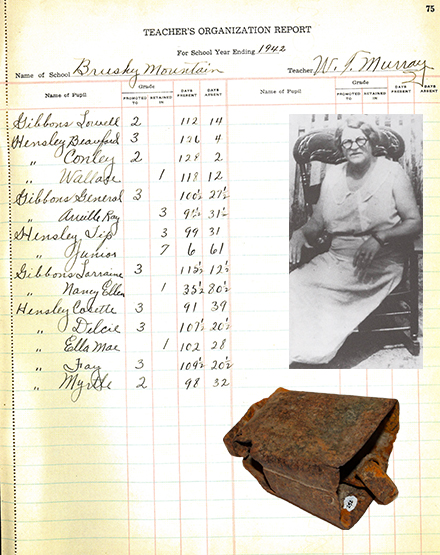 75
TEACHER'S ORGANIZATION REPORT
For School Year Ending 1942
Name of School Brusky Mountain Teacher W. T. Murray
Name of Pupil Grade PROMOTED TO RETAINED IN DAYS PRESENT DAYS ABSENT Name of Pupil Grade PROMOTED TO RETAINED IN DAYS PRESENT DAYS ABSENT
Gibbons Lowell 2 112 14
Hensley Beauford 3 126 4
" Conley 2 128 2
" Wallace 1 118 12
Gibbons General 3 100½ 27½
" Ray 3 31½
Hensley Tip 3 99 31
" Junior 7 6 61
Gibbons Lorraine 3 12½
" Nancy Ellen 1 80½
Hensley Colette 3 91 39
" Delcie 3 107½ 20½
" Ella Mae 1 102 28
" Fay 3 109½ 20½
" Myrtle 2 98 32